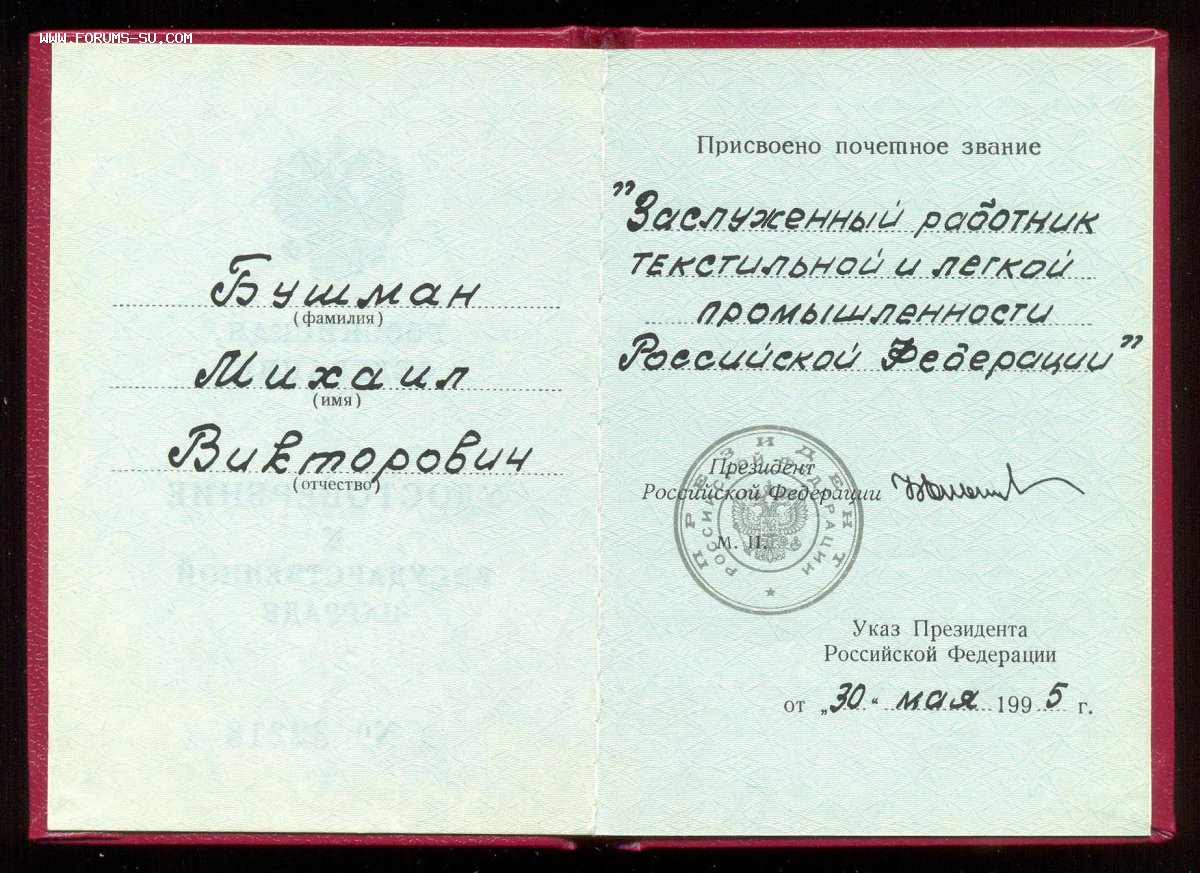 www.forums-su.com
Бушман
(фамилия)
Михаил
(имя)
Викторович
(отчество)
Присвоено почетное звание
"Заслуженный работник
текстильной и легкой
промышленности
Российской Федерации"
Президент
Российской Федерации
М. П.
ПРЕЗИДЕНТ
РОССИЙСКОЙ ФЕДЕРАЦИИ
Указ Президента
Российской Федерации
от „30“ мая 1995 г.